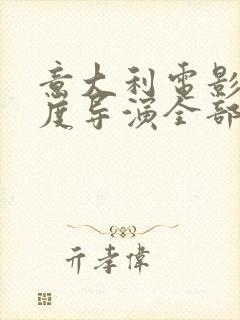 意大利電影
度导演全部
亓孝偉